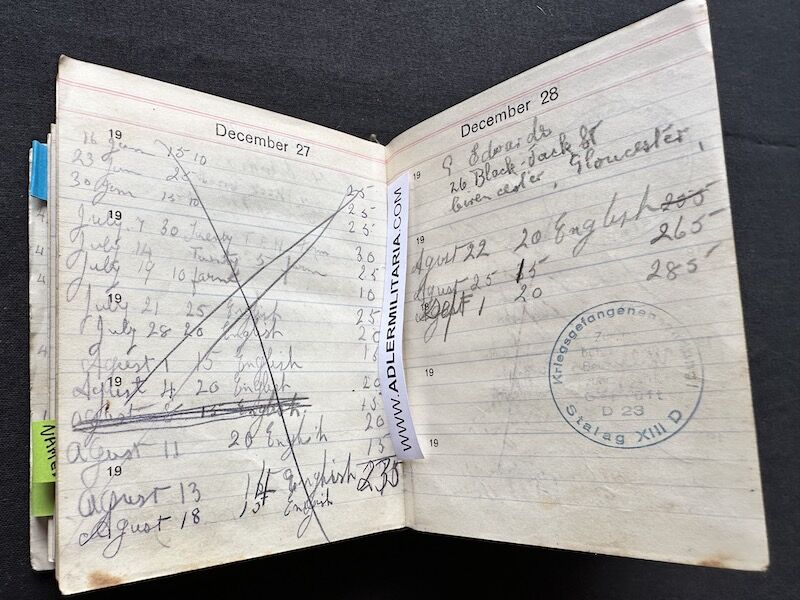 December 27
19
16 June 15 10
23 June 25
30 June 15 10
25
25
25
19
July 7 30 Twenty
30
July 14 Twenty 5 farm
25
July 17 10 farm
10
19
July 21 25 English
25
July 28 20 English
20
Agust 1 15 English
15
19
Agust 4 20 English
20
agust 8 15 English
15
agust 11 20 English
20
15
19
agust 13 English 235
agust 18 15 English
WWW.ADLERMILITARIA.COM
December 28
19
G Edwards
26 Black-Jack St
Cirencester, Gloucester,
19
Agust 22 20 English 205
265
Agust 25 15
285
Sept 1 20
19
19
19
Kriegsgefangenen
Geprüft
D 23
Stalag XIII D
4
4
4